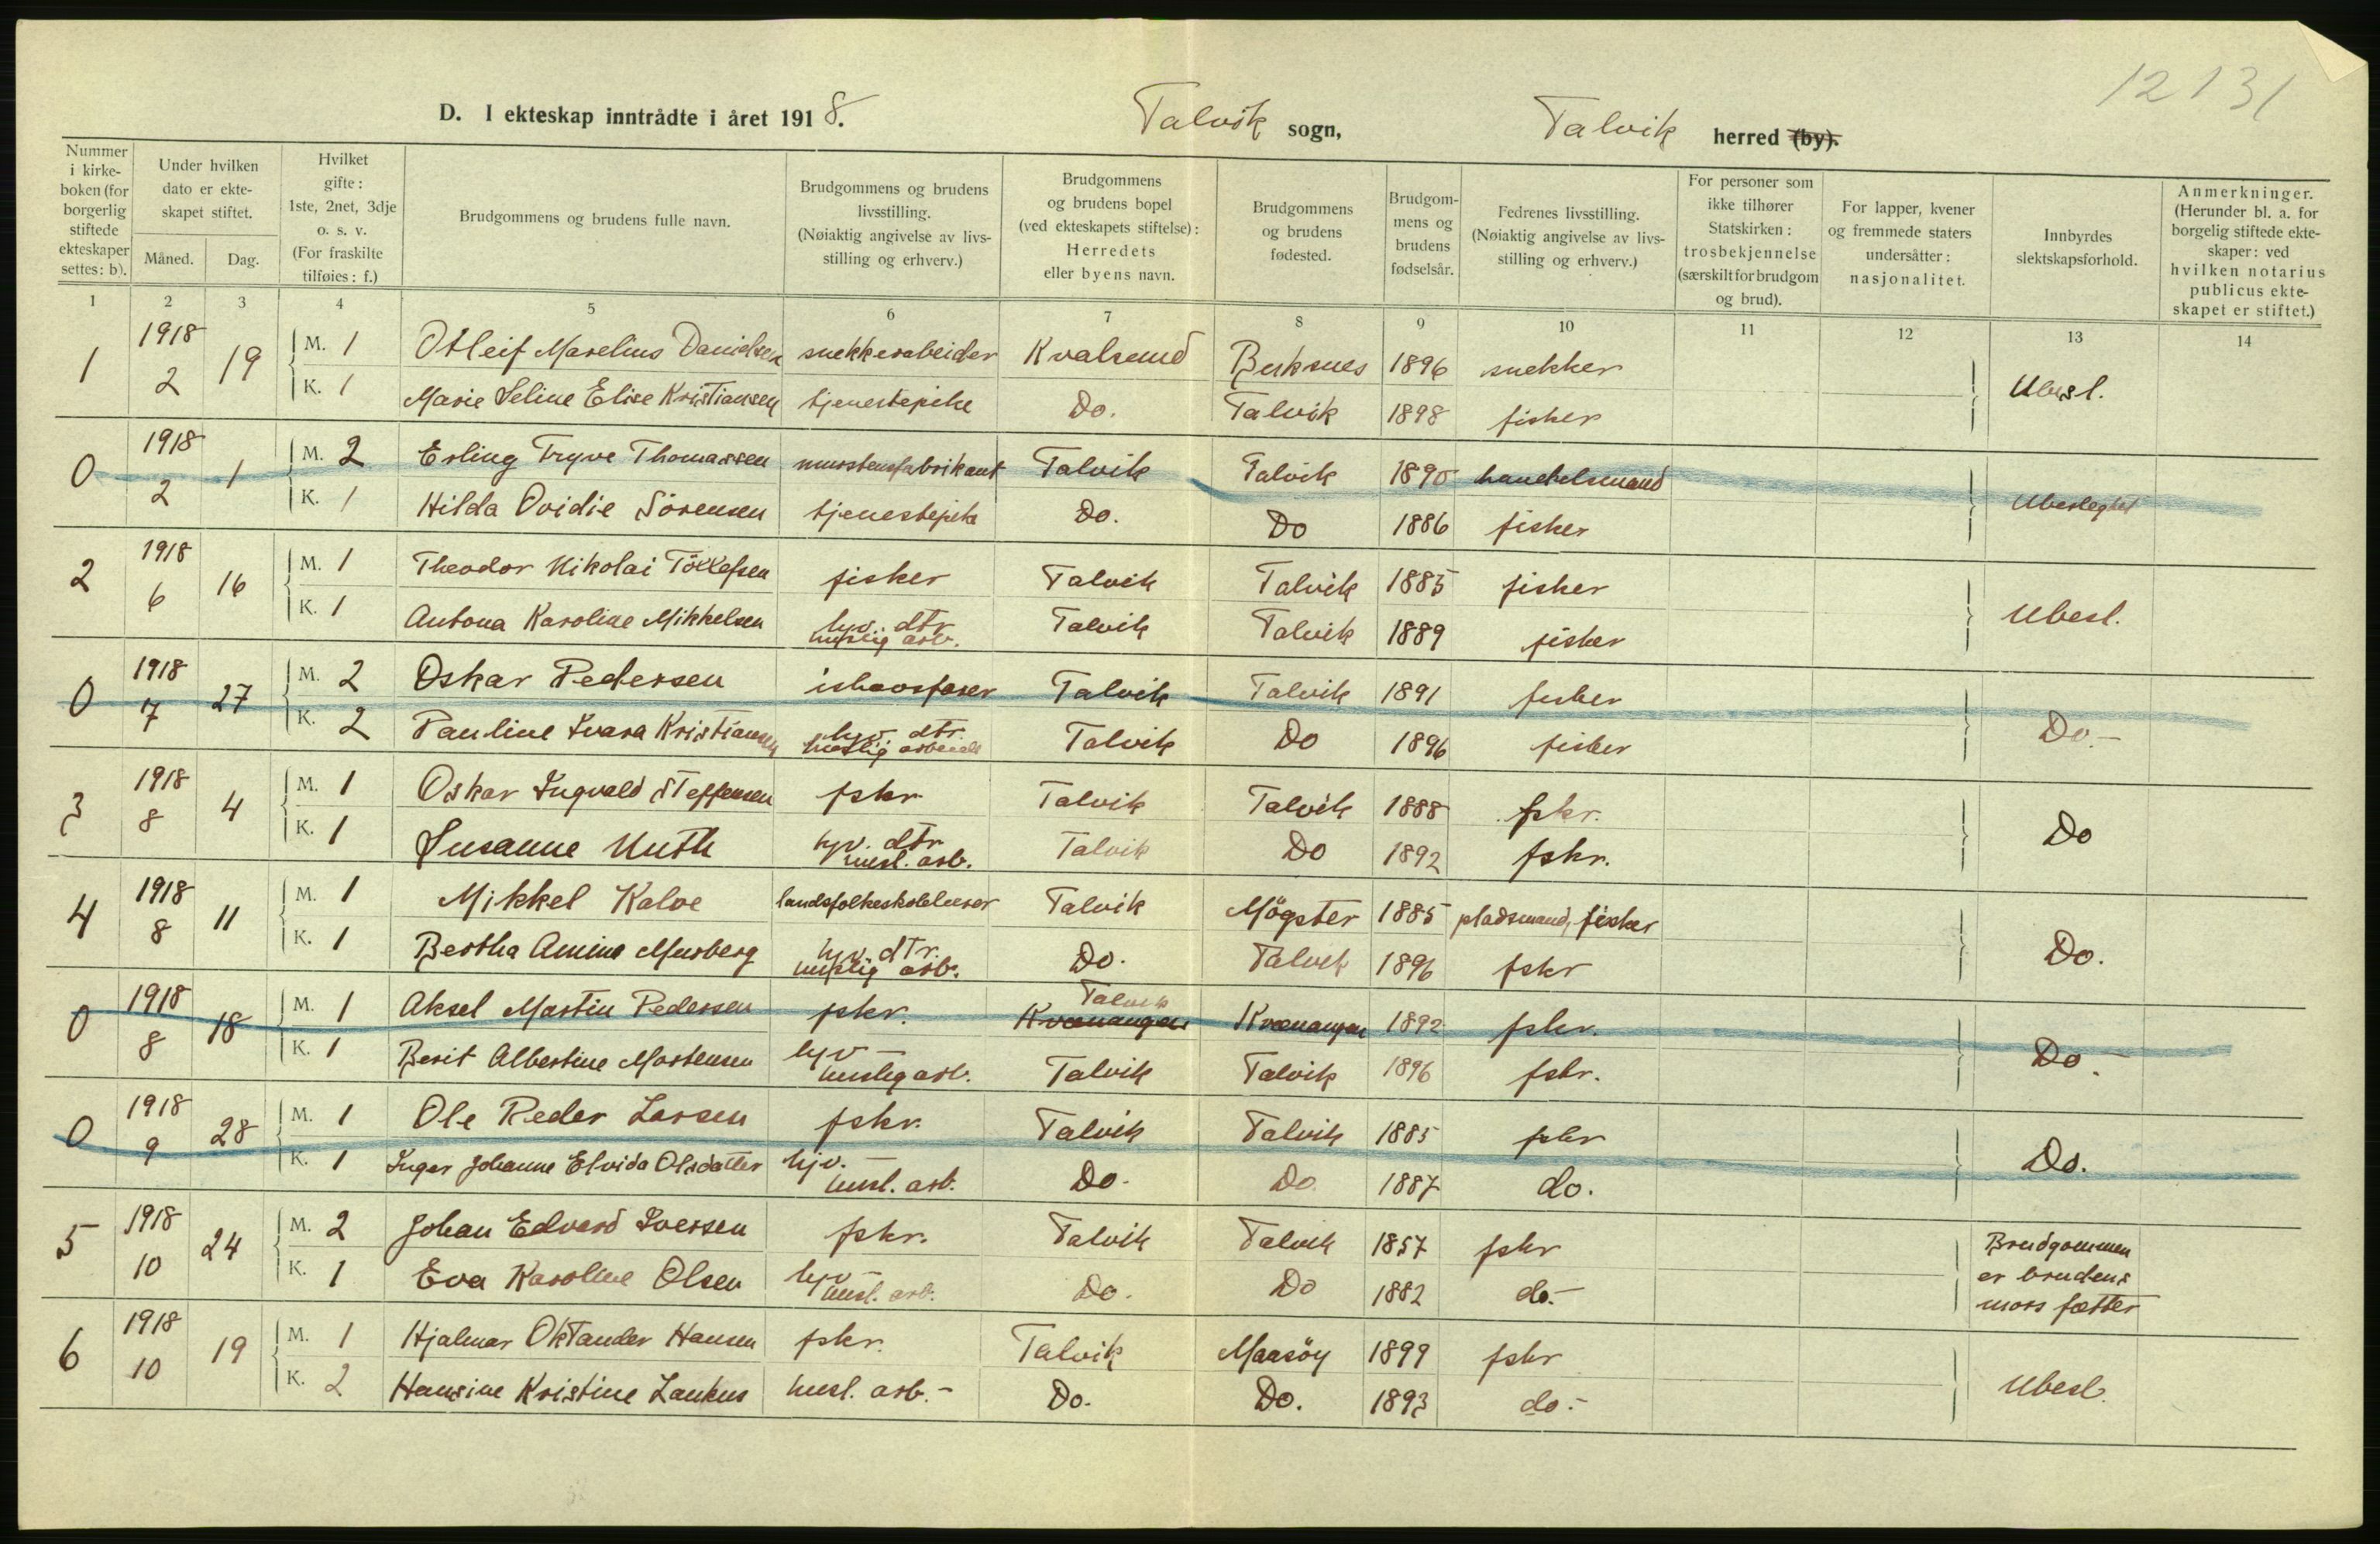 12131
D. I ekteskap inntrådte i året 1918. Talvik sogn, Talvik herred (by).
Nummer i kirkeboken (for borgerlig stiftede ekteskaper settes: b).
Under hvilken dato er ekteskapet stiftet.
Måned. Dag.
Hvilket gifte: 1ste, 2net, 3dje o. s. v. (For fraskilte tilføies: f.)
Brudgommens og brudens fulle navn.
Brudgommens og brudens livsstilling. (Nøiaktig angivelse av livsstilling og erhverv.)
Brudgommens og brudens bopel (ved ekteskapets stiftelse): Herredets eller byens navn.
Brudgommens og brudens fødested.
Brudgommens og brudens fødselsår.
Fedrenes livsstilling. (Nøiaktig angivelse av livsstilling og erhverv.)
For personer som ikke tilhører Statskirken: trosbekjennelse (særskilt for brudgom og brud).
For lapper, kvener og fremmede staters undersåtter: nasjonalitet.
Innbyrdes slektskapsforhold.
Anmerkninger. (Herunder bl. a. for borgelig stiftede ekteskaper: ved hvilken notarius publicus ekteskapet er stiftet.)
1 2 3 4 5 6 7 8 9 10 11 12 13 14
1 1918 2 19 M. 1 Otleif Marelius Danielsen snekkerarbeider Kvalsund Buksnes 1896 snekker Ubesl.
K. 1 Marie Seline Elise Kristiansen tjenestepike Do. Talvik 1898 fisker
0 1918 2 1 M. 2 Erling Tryve Thomassen murstensfabrikant Talvik Talvik 1890 handelsmand Ubeslegtet
K. 1 Hilda Ovidie Sörensen tjenestepike Do. Do 1886 fisker
2 1918 6 16 M. 1 Theodor Nikolai Töllefsen fisker Talvik Talvik 1885 fisker Ubesl.
K. 1 Antona Karoline Mikkelsen hjv. dtr. huslig arb. Talvik Talvik 1889 fisker
0 1918 7 27 M. 2 Oskar Pedersen ishavsfarer Talvik Talvik 1891 fisker Do.-
K. 2 Pauline Ivara Kristiansen hjv. dtr. huslig arbeide Talvik Do 1896 fisker
3 1918 8 4 M. 1 Oskar Ingvald Steffensen fskr Talvik Talvik 1888 fskr. Do
K. 1 Susanne Muth hjv. dtr husl. arb. Talvik Do 1892 fskr.
4 1918 8 11 M. 1 Mikkel Kalve landsfolkeskolelærer Talvik Mögster 1885 pladsmand, fisker Do.
K. 1 Bertha Amina Murberg hjv. dtr. huslig arb. Do. Talvik 1896 fskr
0 1918 8 18 M. 1 Aksel Martin Pedersen fskr. Talvik Kvænangen Kvænangen 1892 fskr. Do.-
K. 1 Berit Albertine Mortensen hjv - huslig arb. Talvik Talvik 1896 fskr.
0 1918 9 28 M. 1 Ole Peder Larsen fskr. Talvik Talvik 1885 fskr Do.
K. 1 Inger Johanne Elvida Olsdatter hjv. - husl. arb. Do. Do. 1887 do.
5 1918 10 24 M. 2 Johan Edvard Iversen fskr. Talvik Talvik 1857 fskr Brudgommen er brudens mors fætter
K. 1 Eva Karoline Olsen hjv - husl. arb. Do. Do 1882 do.-
6 1918 10 19 M. 1 Hjalmar Oktander Hansen fskr. Talvik Maasöy 1899 fskr Ubesl.
K. 2 Hansine Kristine Lankus husl. arb.- Do. Do. 1893 do.-